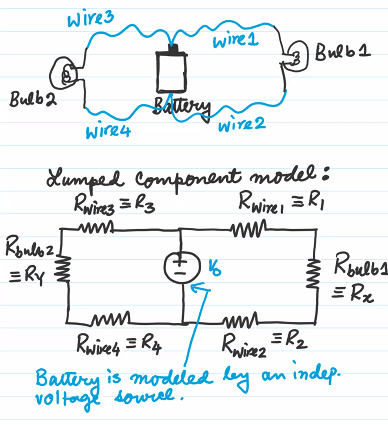 wire3
wire1
Bulb1
Bulb2
Battery
wire4
wire2
Lumped Component model:
Rwire3 ≡ R3
Rwire1 ≡ R1
Rbulb2
≡ RY
+
−
V0
Rbulb1
≡ Rx
Rwire4 ≡ R4
Rwire2 ≡ R2
Battery is modeled by an indep.
voltage source.